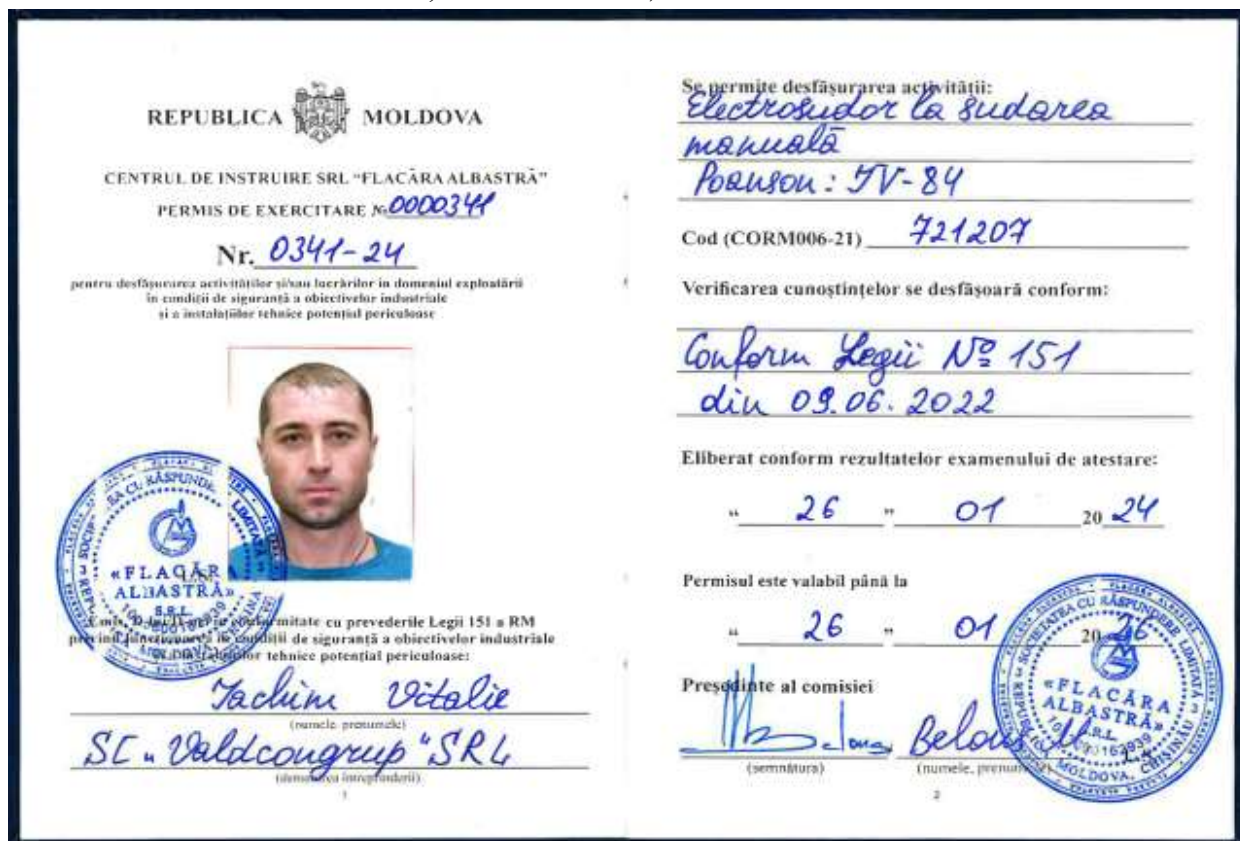 REPUBLICA MOLDOVA
CENTRUL DE INSTRUIRE SRL "FLACĂRA ALBASTRĂ"
PERMIS DE EXERCITARE № 0000341
Nr. 0341-24
pentru desfășurarea activităților și/sau lucrărilor în domeniul exploatării
în condiții de siguranță a obiectivelor industriale
și a instalațiilor tehnice potențial periculoase
«FLACĂRA
ALBASTRĂ»
S.R.L.
conformitate cu prevederile Legii 151 a RM
privind funcționarea în condiții de siguranță a obiectivelor industriale
tehnice potențial periculoase:
Iachim Vitalie
(numele, prenumele)
SC „Valdcongrup" SRL
(denumirea întreprinderii)
1
Se permite desfășurarea activității:
Electrosudor la sudarea
manuală
Poanson: IV-84
Cod (CORM006-21) 721207
Verificarea cunoștințelor se desfășoară conform:
Conform Legii № 151
din 09.06.2022
Eliberat conform rezultatelor examenului de atestare:
" 26 " 01 20 24
Permisul este valabil până la
" 26 " 01 20 26
Președinte al comisiei
Belous
(semnătura) (numele, prenumele)
«FLACĂRA
ALBASTRĂ»
S.R.L.
2